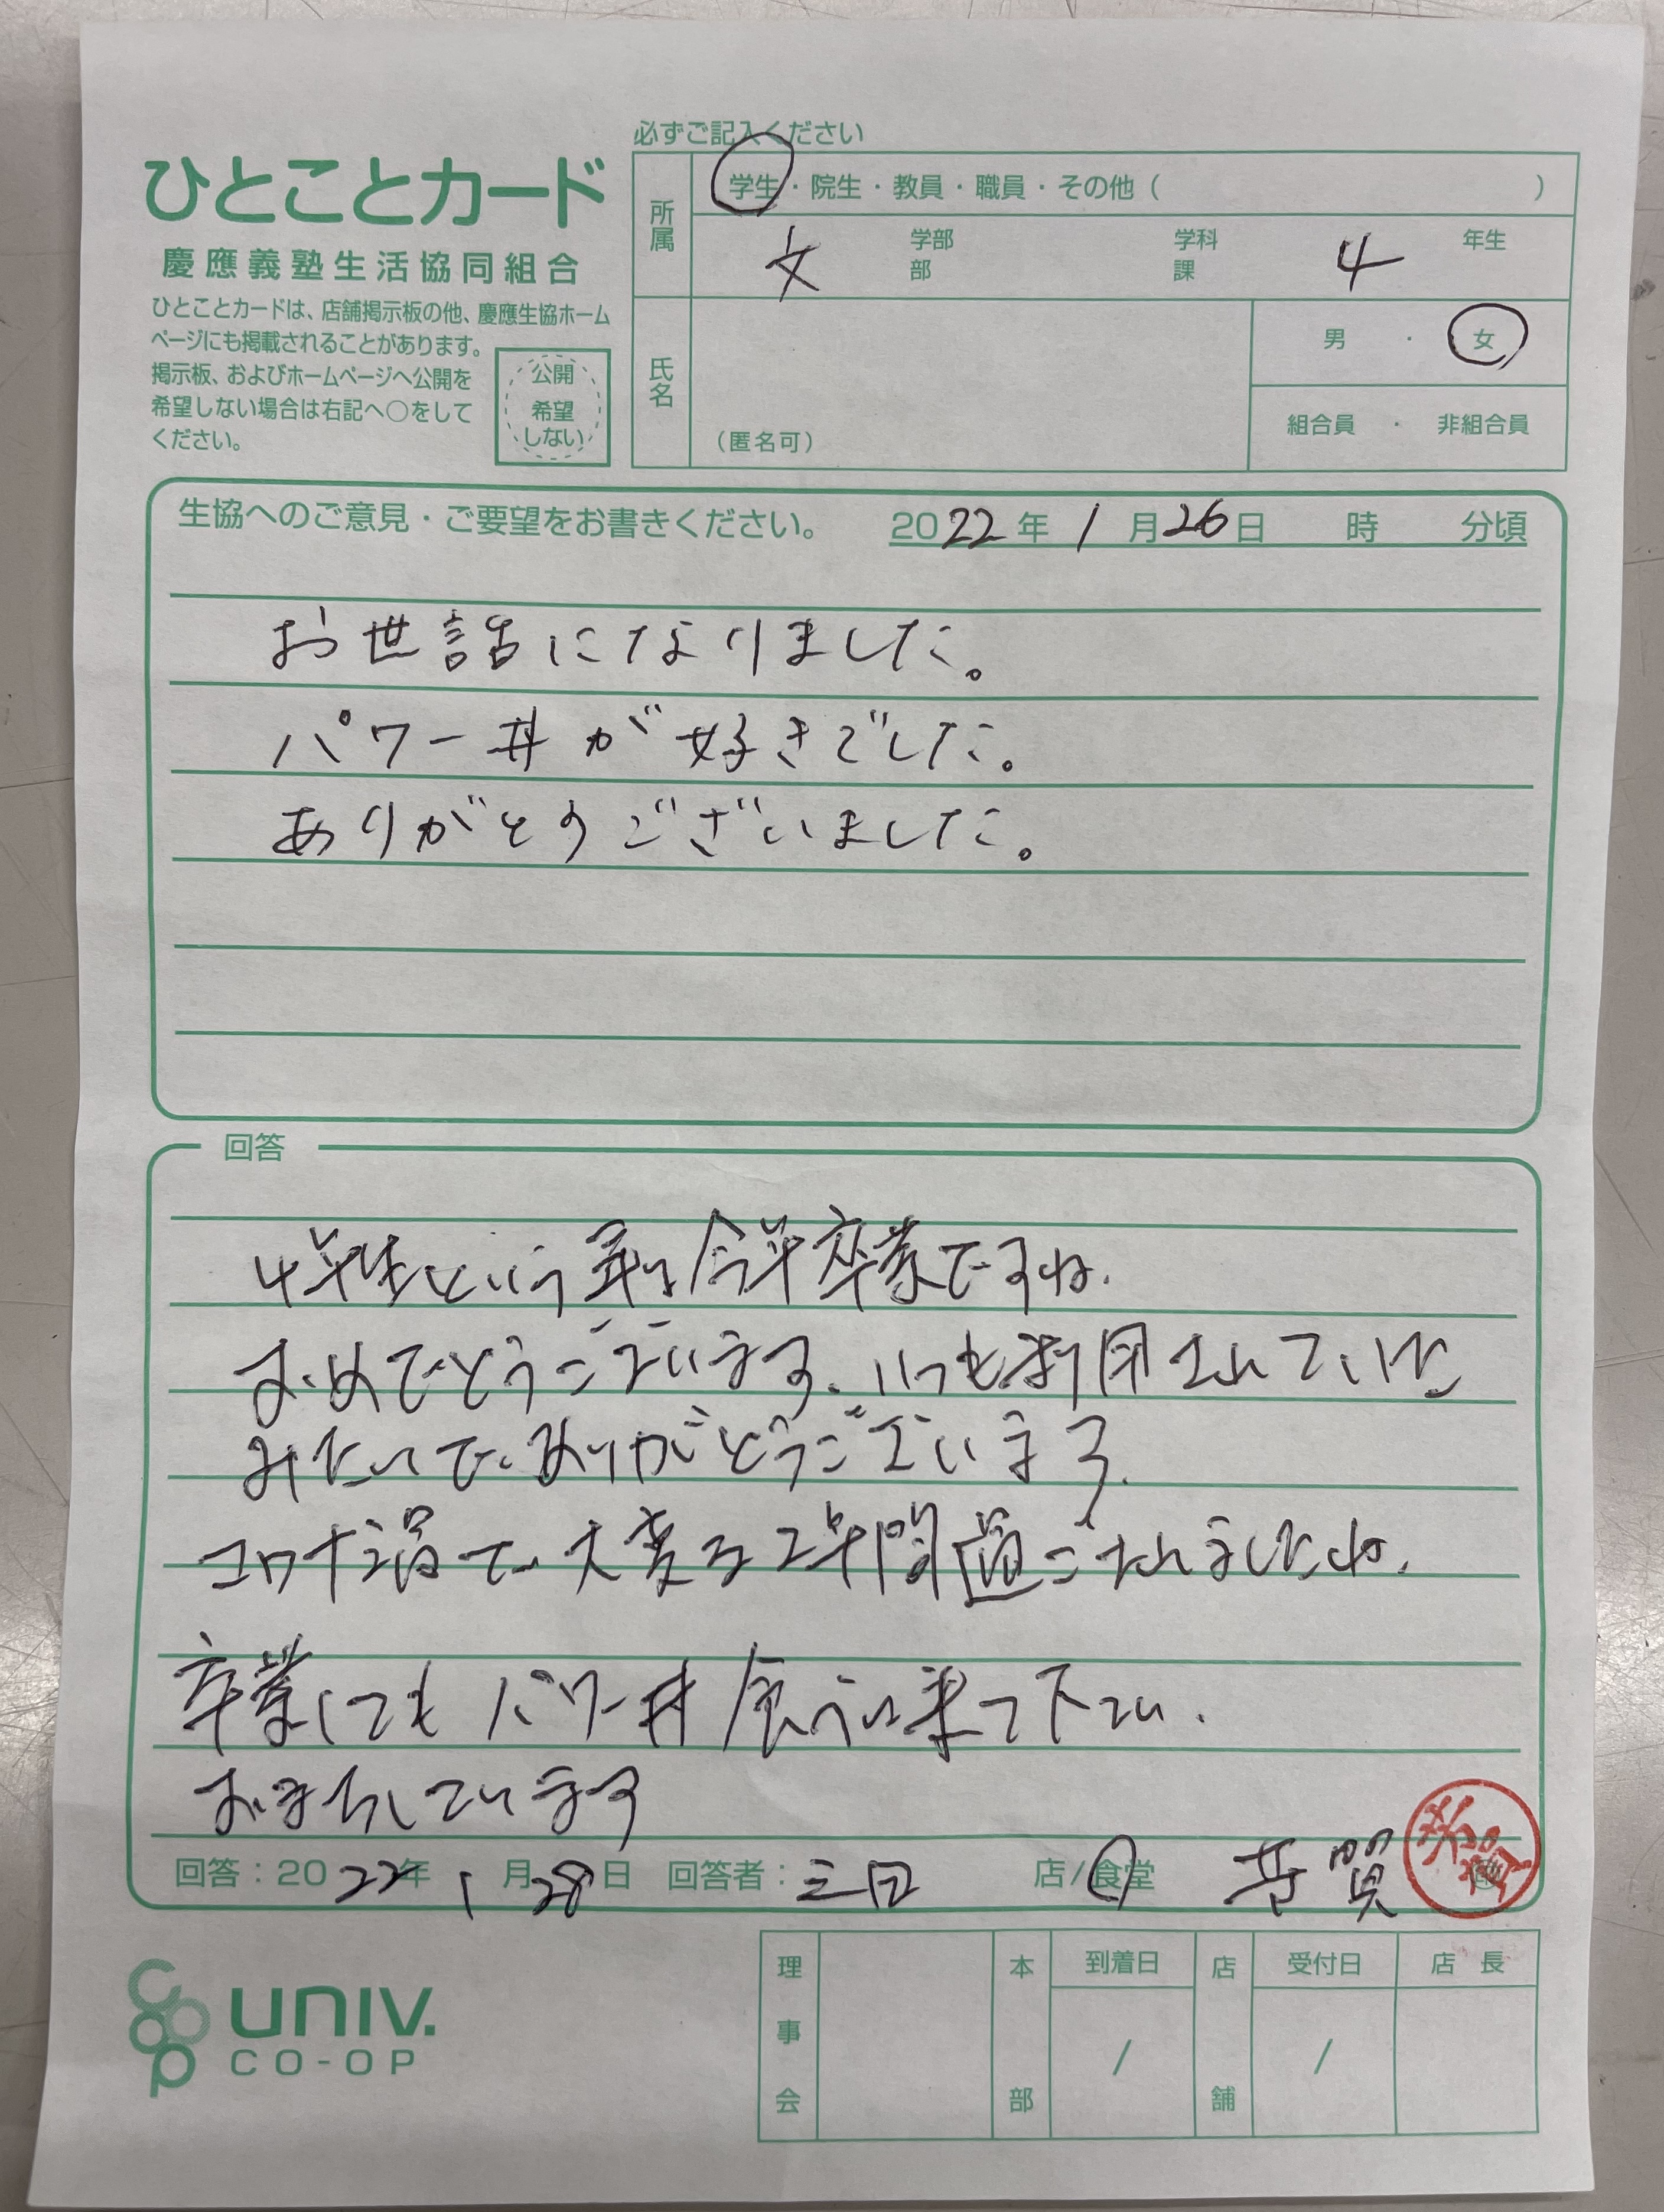 必ずご記入ください
ひとことカード
慶應義塾生活協同組合
ひとことカードは、店舗掲示板の他、慶應生協ホーム
ページにも掲載されることがあります。
掲示板、およびホームページへ公開を
希望しない場合は右記へ○をして
ください。
公開
希望
しない
所属
学生・院生・教員・職員・その他（ ）
文 学部 学科 4 年生
部 課
氏名
（匿名可）
男 ・ 女
組合員 ・ 非組合員
生協へのご意見・ご要望をお書きください。 2022年 1月26日 時 分頃
お世話になりました。
パワー丼が好きでした。
ありがとうございました。
回答
4年生という事は今年卒業ですね.
おめでとうございます. いつも利用されていた
みたいで. ありがとうございます.
コロナ渦で大変な2年間過ごされましたね.
卒業してもパワー丼食べに来て下さい.
お待ちしています
回答：2022年 1月28日 回答者：三田 店/食堂 芳賀
芳賀
理事会
本部
到着日
/
店舗
受付日
/
店長
UNIV.
CO-OP